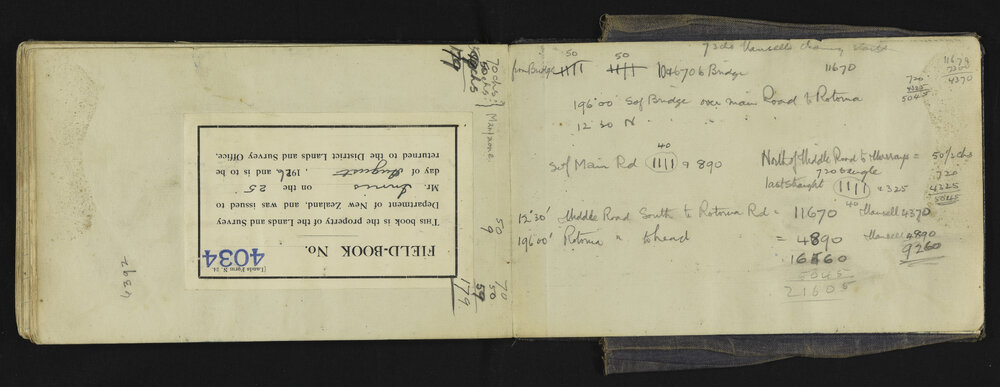 (Lands Form N. 24.
4034
FIELD-BOOK No.
This book is the property of the Lands and Survey
Department of New Zealand, and was issued to
Mr. Innis on the 25
day of August, 1926, and is to be
returned to the District Lands and Survey Office.
6392
179
70chs
50chs
59
179
70
50
59
179
72chs Mansell chainy
50 50
from Bridge 1111 1111 10+670 to Bridge 11670
11670
7300
4370
720
4325
5045
196°00' S of Bridge over main Road to Rotorua
12°30 N " " "
40
S of Main Rd (1111) + 890
North of Middle Road to Murrays = 50 1/2 chs
720 to angle
last straight (1111) + 325
40
720
4325
5045
12°30' Middle Road South to Rotorua Rd = 11670 Mansell 4370
196°00' Rotorua " to head = 4890 Mansell 4890
16560 9260
5045
21605